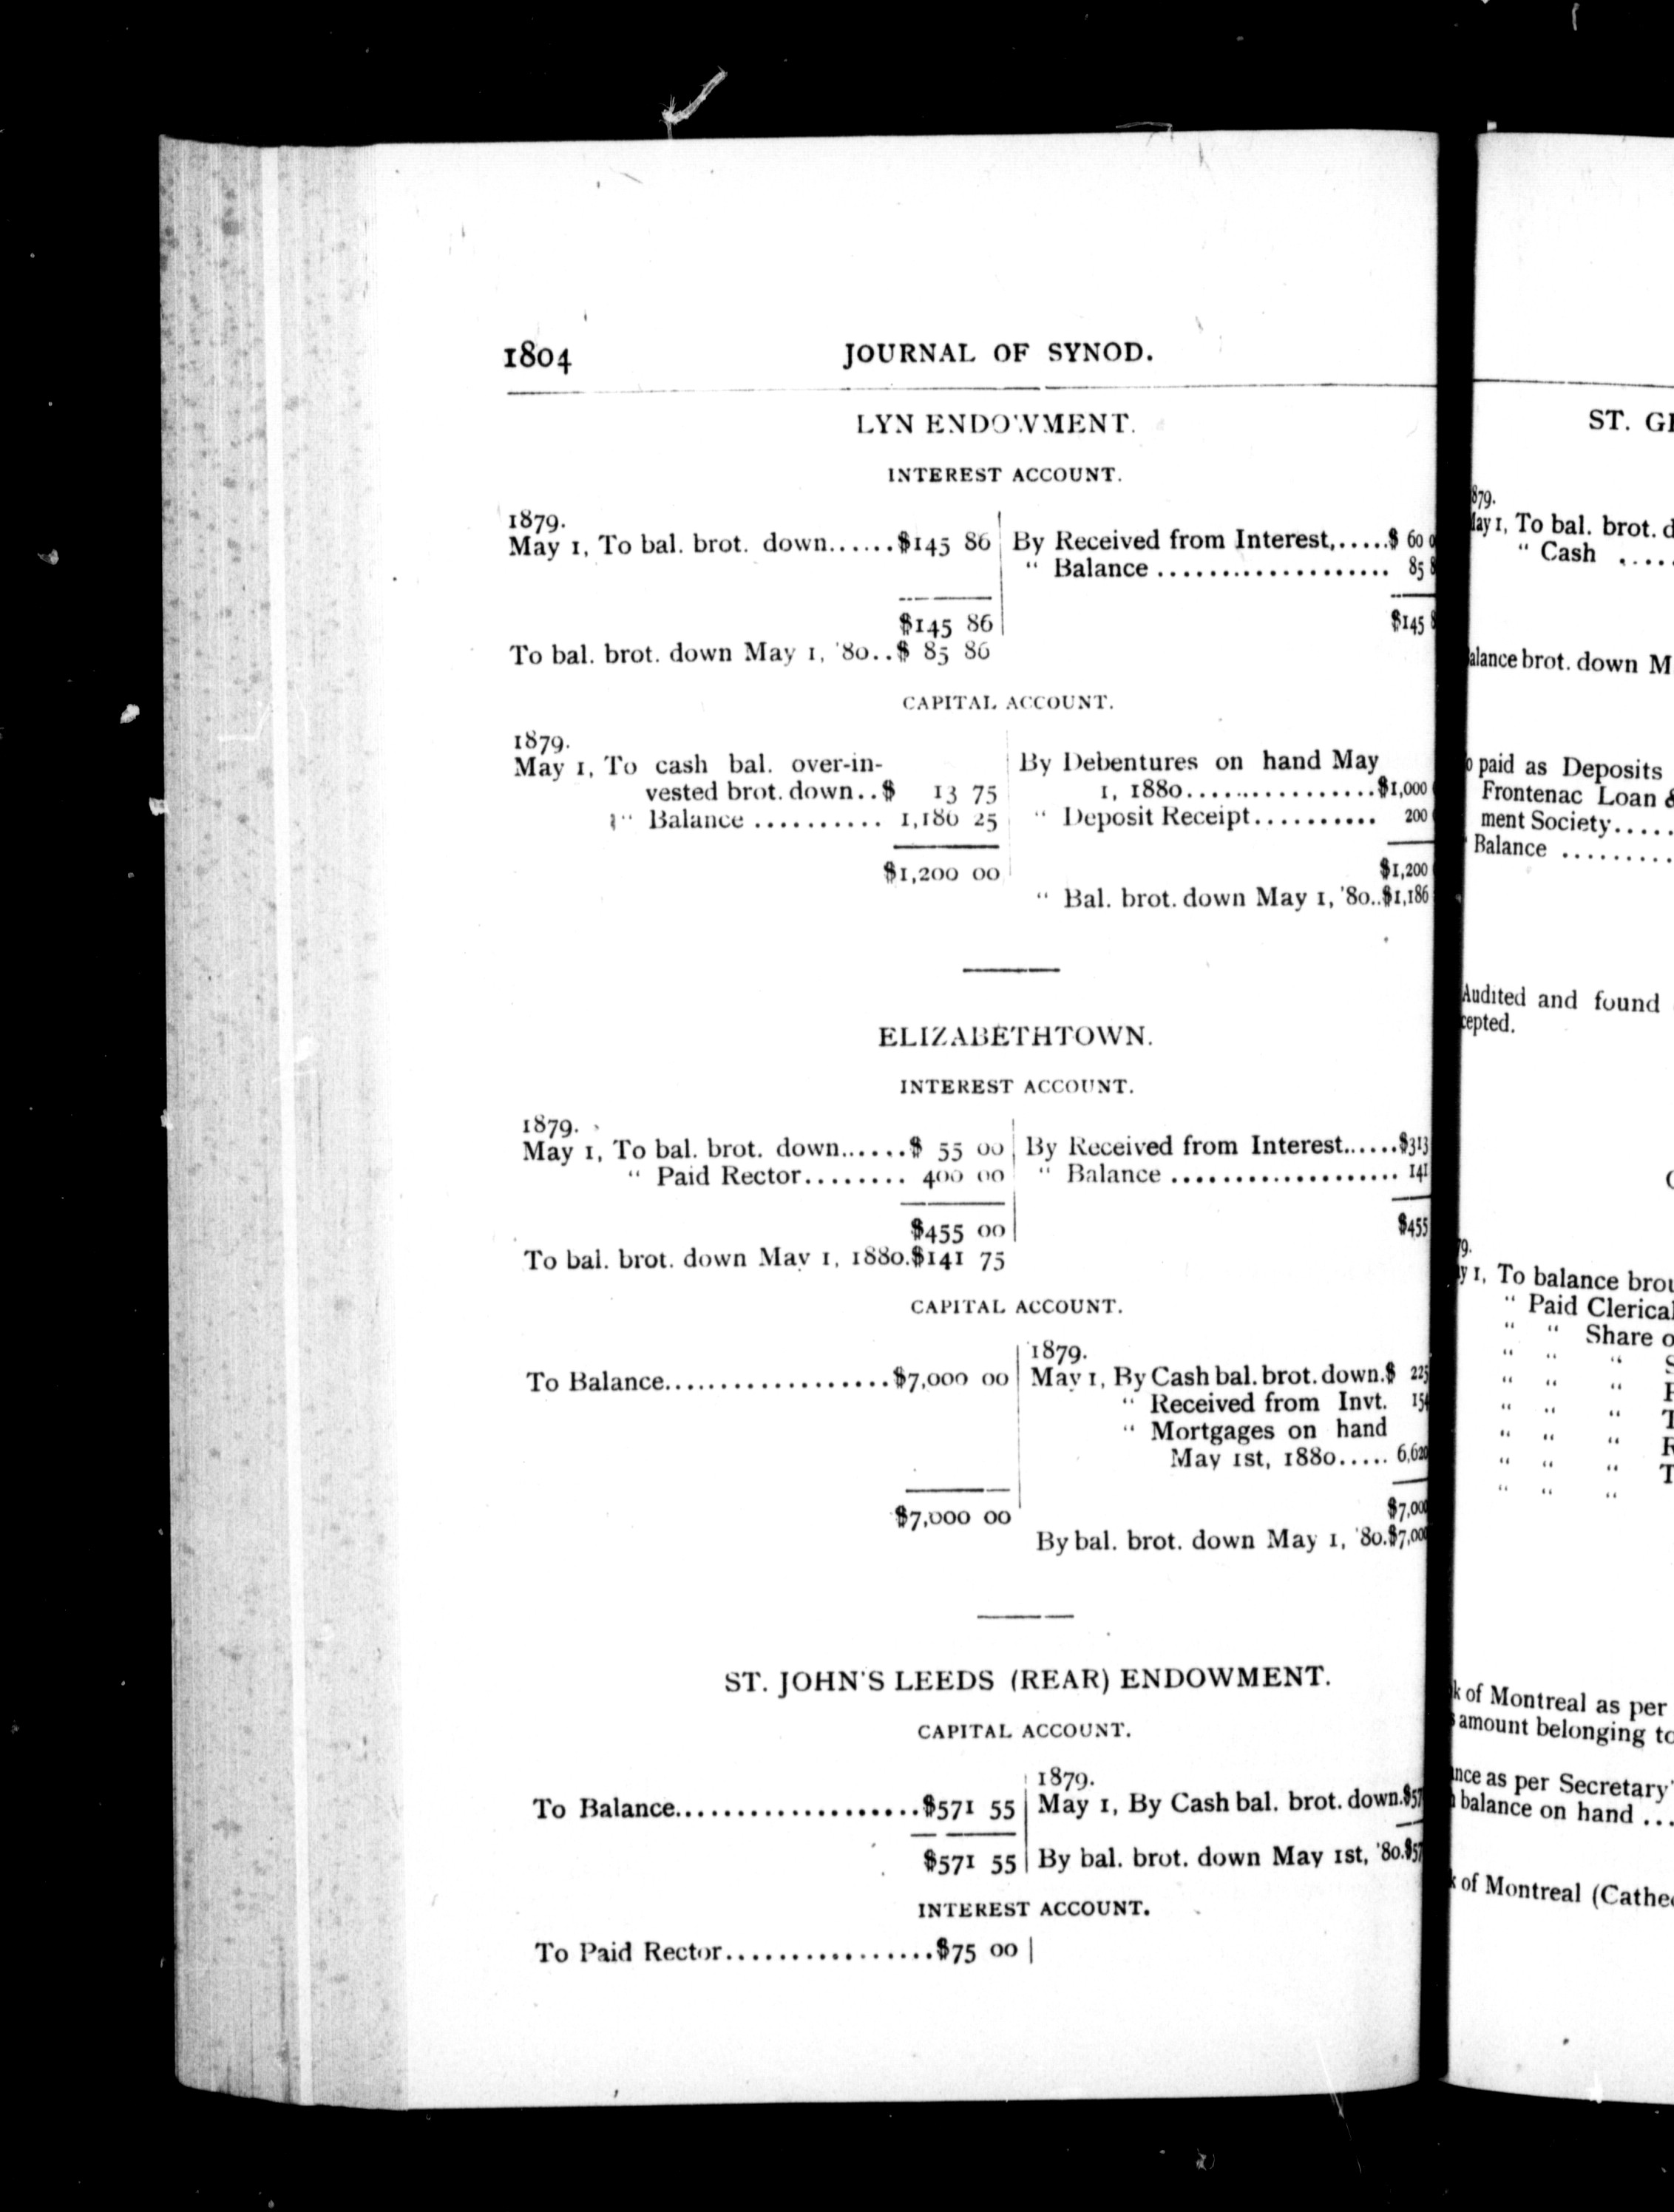 1804 JOURNAL OF SYNOD.
LYN ENDOWMENT.
INTEREST ACCOUNT.
1879.
May 1, To bal. brot. down......$145 86
$145 86
To bal. brot. down May 1, '80..$ 85 86
By Received from Interest,.....$ 60
" Balance ................... 85
$145
CAPITAL ACCOUNT.
1879.
May 1, To cash bal. over-in-
vested brot. down..$ 13 75
" Balance .......... 1,186 25
$1,200 00
By Debentures on hand May
1, 1880................$1,000
" Deposit Receipt.......... 200
$1,200
" Bal. brot. down May 1, '80..$1,186
ELIZABETHTOWN.
INTEREST ACCOUNT.
1879.
May 1, To bal. brot. down......$ 55 00
" Paid Rector........ 400 00
$455 00
To bal. brot. down May 1, 1880.$141 75
By Received from Interest......$313
" Balance ................... 141
$455
CAPITAL ACCOUNT.
To Balance..................$7,000 00
$7,000 00
1879.
May 1, By Cash bal. brot. down.$ 225
" Received from Invt. 154
" Mortgages on hand
May 1st, 1880..... 6,620
$7,000
By bal. brot. down May 1, '80.$7,000
ST. JOHN'S LEEDS (REAR) ENDOWMENT.
CAPITAL ACCOUNT.
To Balance....................$571 55
$571 55
1879.
May 1, By Cash bal. brot. down.$57
By bal. brot. down May 1st, '80.$57
INTEREST ACCOUNT.
To Paid Rector.................$75 00
ST.
879.
May 1, To bal. brot.
" Cash ....
alance brot. down M
paid as Deposits
Frontenac Loan &
ment Society.....
Balance .........
Audited and found
cepted.
79.
y 1, To balance brou
" Paid Clerical
" " Share o
" " "
" " "
" " "
" " "
" " "
" " "
k of Montreal as per
amount belonging to
nce as per Secretary'
balance on hand ...
k of Montreal (Cathe